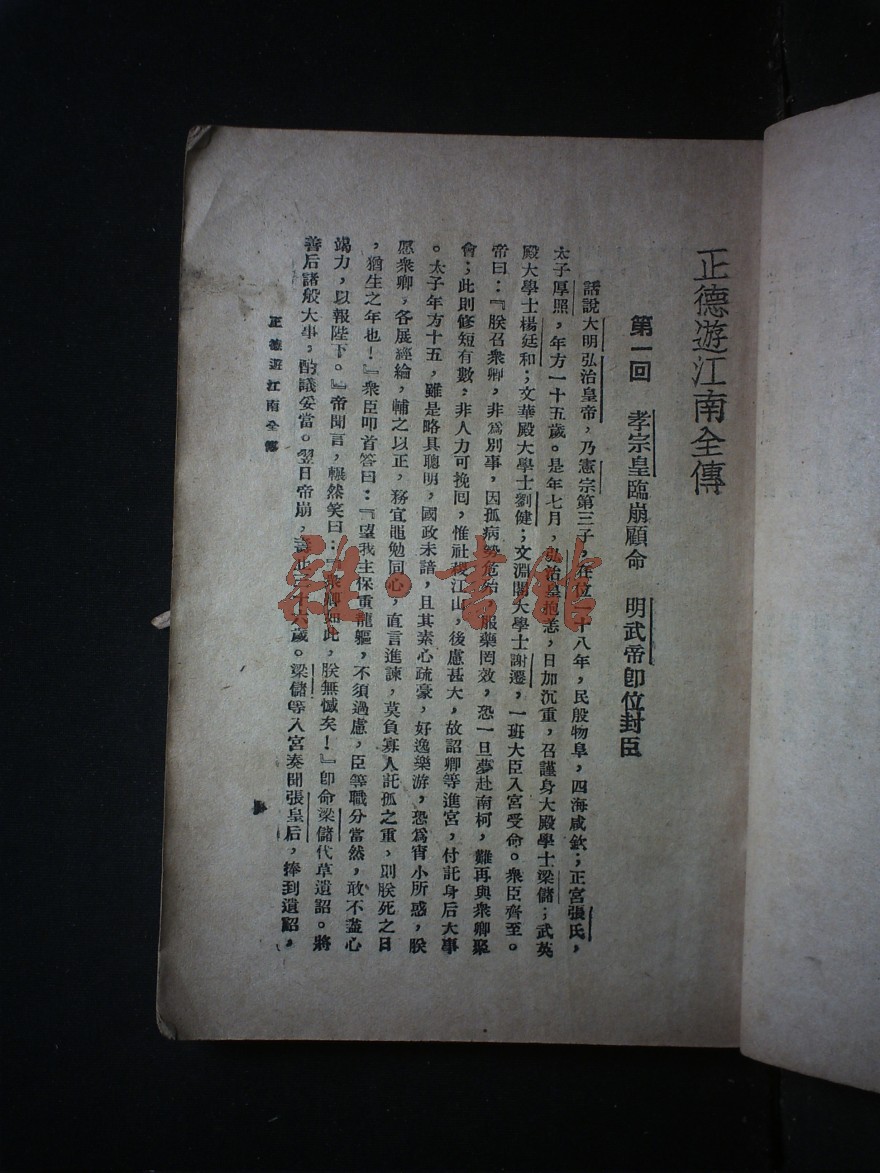 正德遊江南全傳
第一回 孝宗皇臨崩顧命 明武帝卽位封臣
話說大明弘治皇帝，乃憲宗第三子，在位一十八年，民殷物阜，四海咸欽；正宮張氏，
太子厚照，年方一十五歲。是年七月，弘治皇抱恙，日加沉重，召謹身大殿學士梁儲；武英
殿大學士楊廷和；文華殿大學士劉健；文淵閣大學士謝遷，一班大臣入宮受命。衆臣齊至。
帝曰：『朕召衆卿，非爲別事，因孤病勢危殆，服藥罔效，恐一旦夢赴南柯，難再與衆卿聚
會；此則修短有數，非人力可挽囘，惟社稷江山，後慮甚大，故詔卿等進宮，付託身后大事
。太子年方十五，雖是略具聰明，國政未諳，且其素心疏豪，好逸樂游，恐爲宵小所惑，朕
愿衆卿，各展經綸，輔之以正，務宜黽勉同心，直言進諫，莫負寡人託孤之重，則朕死之日
，猶生之年也！』衆臣叩首答曰：『望我主保重龍軀，不須過慮，臣等職分當然，敢不盡心
竭力，以報陛下。』帝聞言，囅然笑曰：『衆卿如此，朕無憾矣！』卽命梁儲代草遺詔。將
善后諸般大事，酌議妥當。翌日帝崩，壽 三十六歲。梁儲等入宮奏聞張皇后，捧到遺詔，
正德遊江南全傳
雜·書館